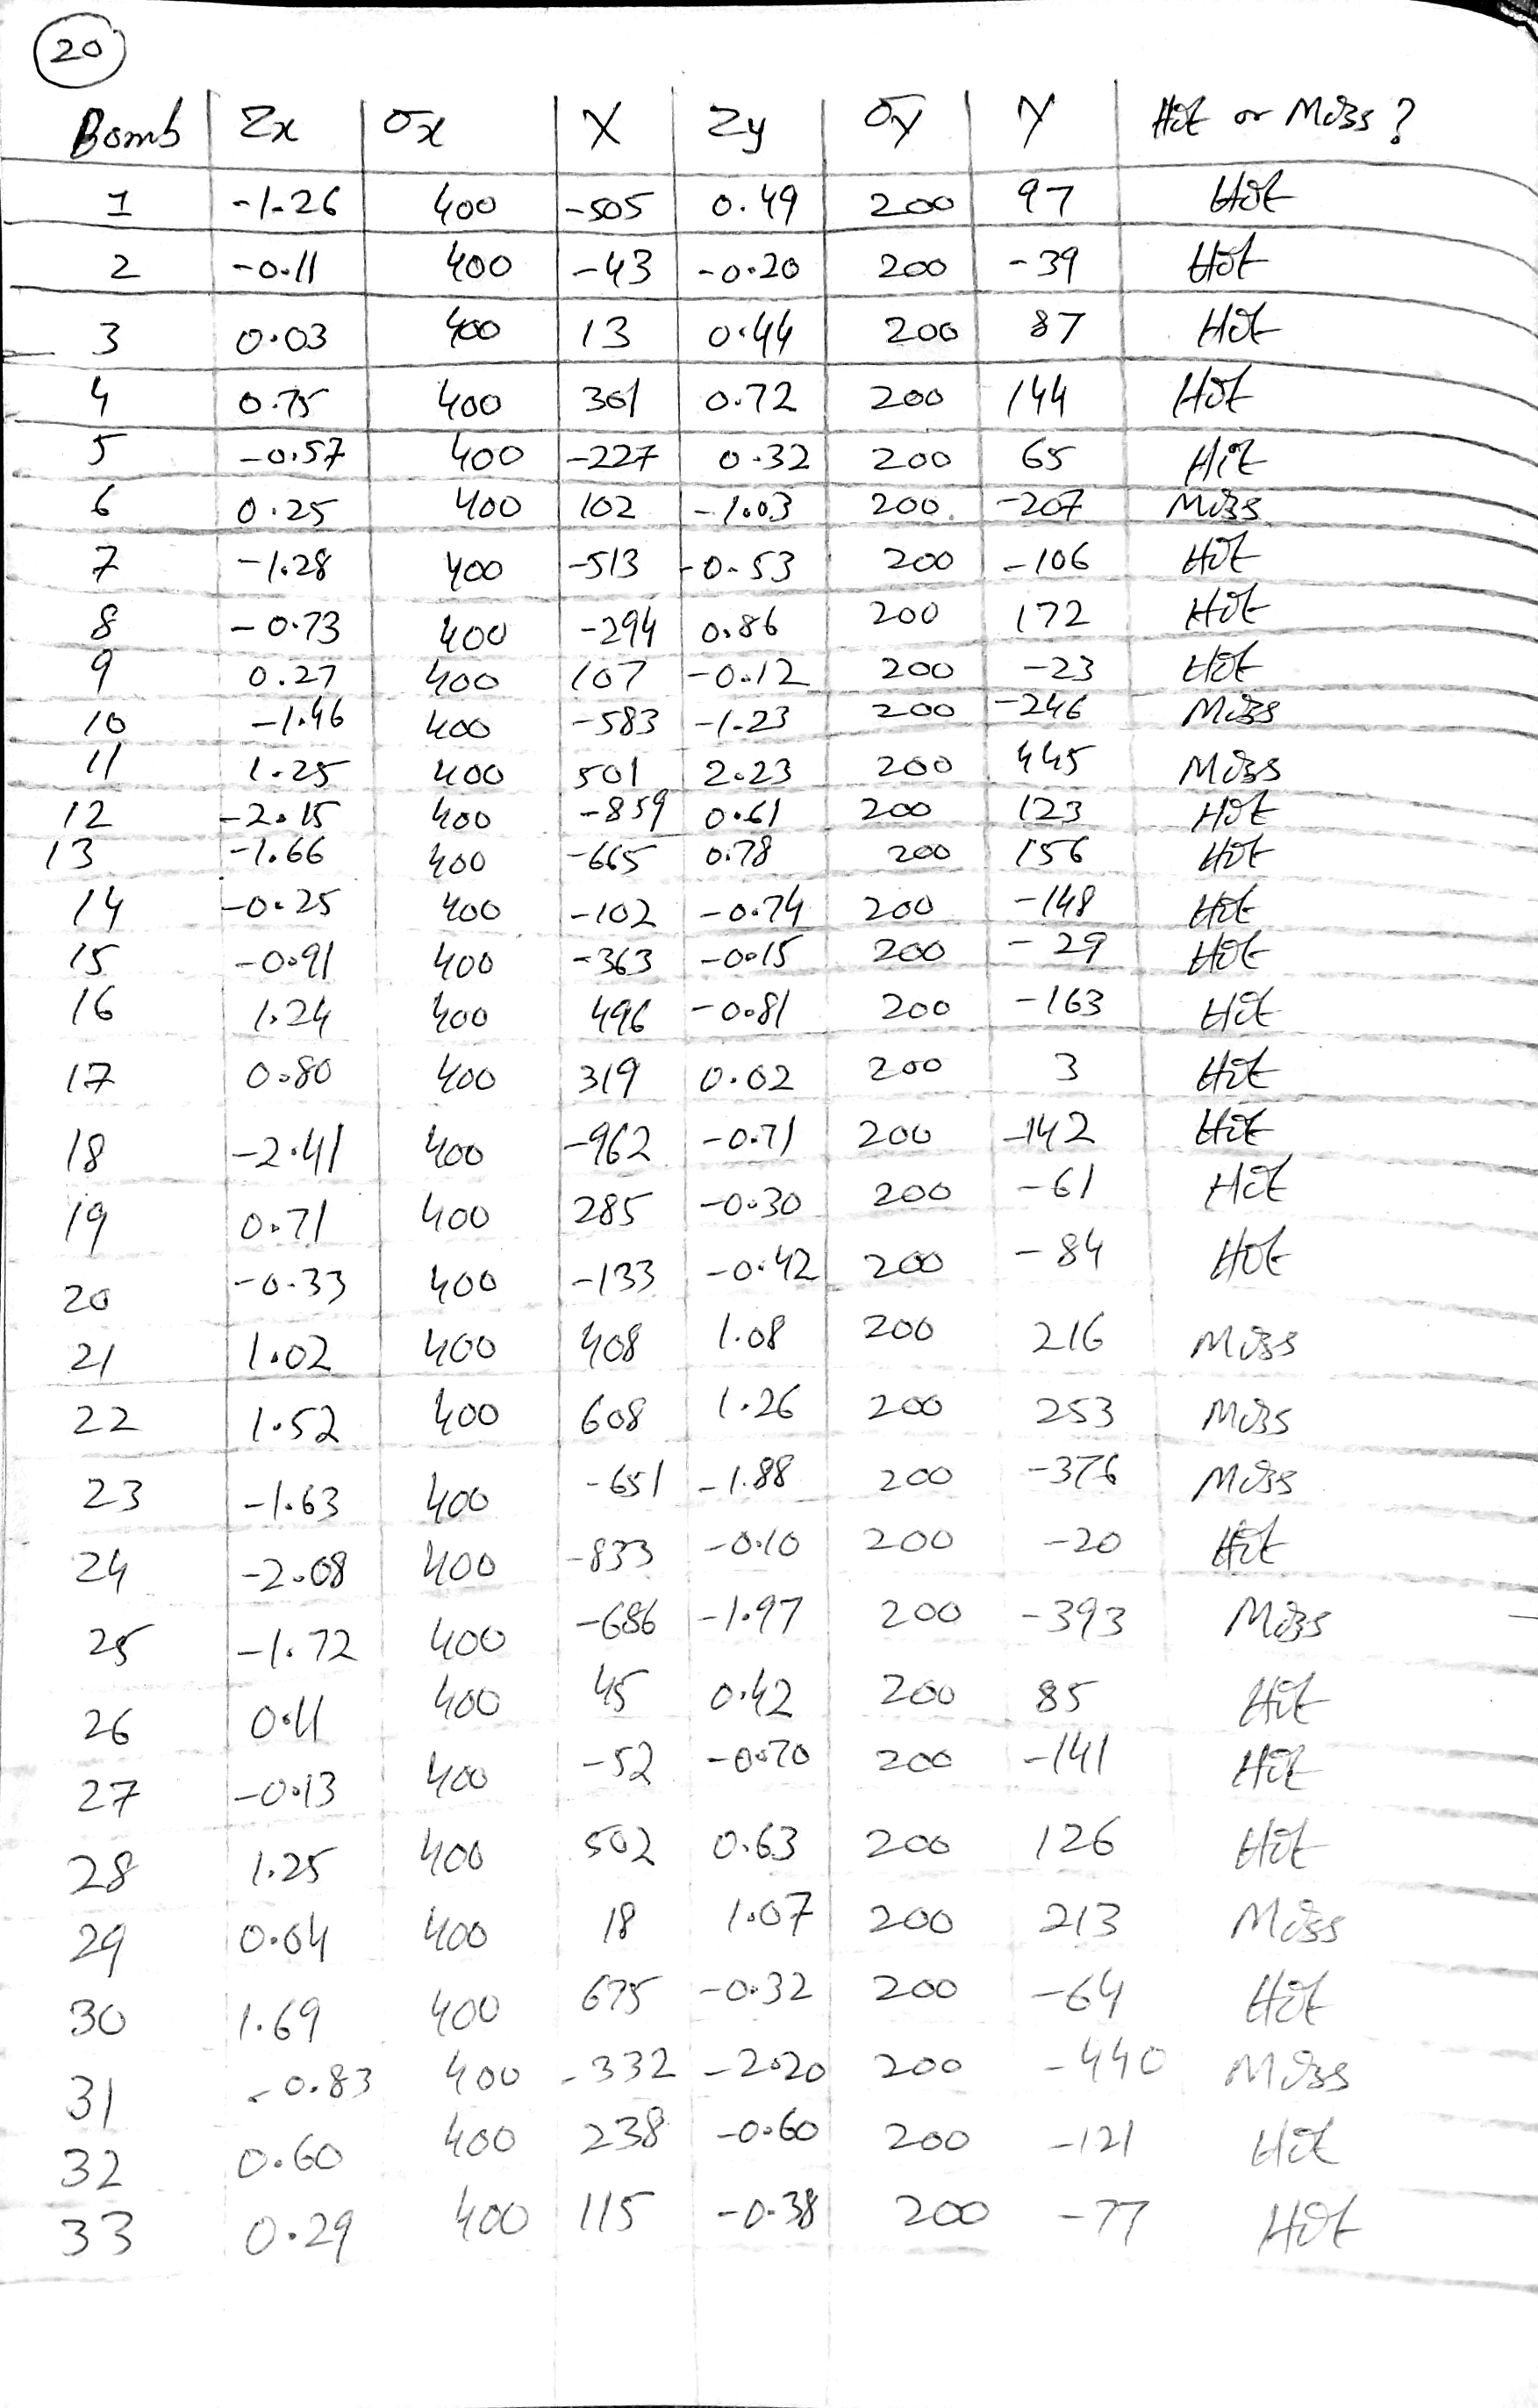 20
Bomb Zx σx X Zy σy Y Hit or Miss ?
1 -1.26 400 -505 0.49 200 97 Hit
2 -0.11 400 -43 -0.20 200 -39 Hit
3 0.03 400 13 0.44 200 87 Hit
4 0.75 400 301 0.72 200 144 Hit
5 -0.57 400 -227 0.32 200 65 Hit
6 0.25 400 102 -1.03 200 -207 Miss
7 -1.28 400 -513 -0.53 200 -106 Hit
8 -0.73 400 -294 0.86 200 172 Hit
9 0.27 400 107 -0.12 200 -23 Hit
10 -1.46 400 -583 -1.23 200 -246 Miss
11 1.25 400 501 2.23 200 445 Miss
12 -2.15 400 -859 0.61 200 123 Hit
13 -1.66 400 -665 0.78 200 156 Hit
14 -0.25 400 -102 -0.74 200 -148 Hit
15 -0.91 400 -363 -0.15 200 -29 Hit
16 1.24 400 496 -0.81 200 -163 Hit
17 0.80 400 319 0.02 200 3 Hit
18 -2.41 400 -962 -0.71 200 -142 Hit
19 0.71 400 285 -0.30 200 -61 Hit
20 -0.33 400 -133 -0.42 200 -84 Hit
21 1.02 400 408 1.08 200 216 Miss
22 1.52 400 608 1.26 200 253 Miss
23 -1.63 400 -651 -1.88 200 -376 Miss
24 -2.08 400 -833 -0.10 200 -20 Hit
25 -1.72 400 -686 -1.97 200 -393 Miss
26 0.11 400 45 0.42 200 85 Hit
27 -0.13 400 -52 -0.70 200 -141 Hit
28 1.25 400 502 0.63 200 126 Hit
29 0.04 400 18 1.07 200 213 Miss
30 1.69 400 675 -0.32 200 -64 Hit
31 -0.83 400 -332 -2.20 200 -440 Miss
32 0.60 400 238 -0.60 200 -121 Hit
33 0.29 400 115 -0.38 200 -77 Hit